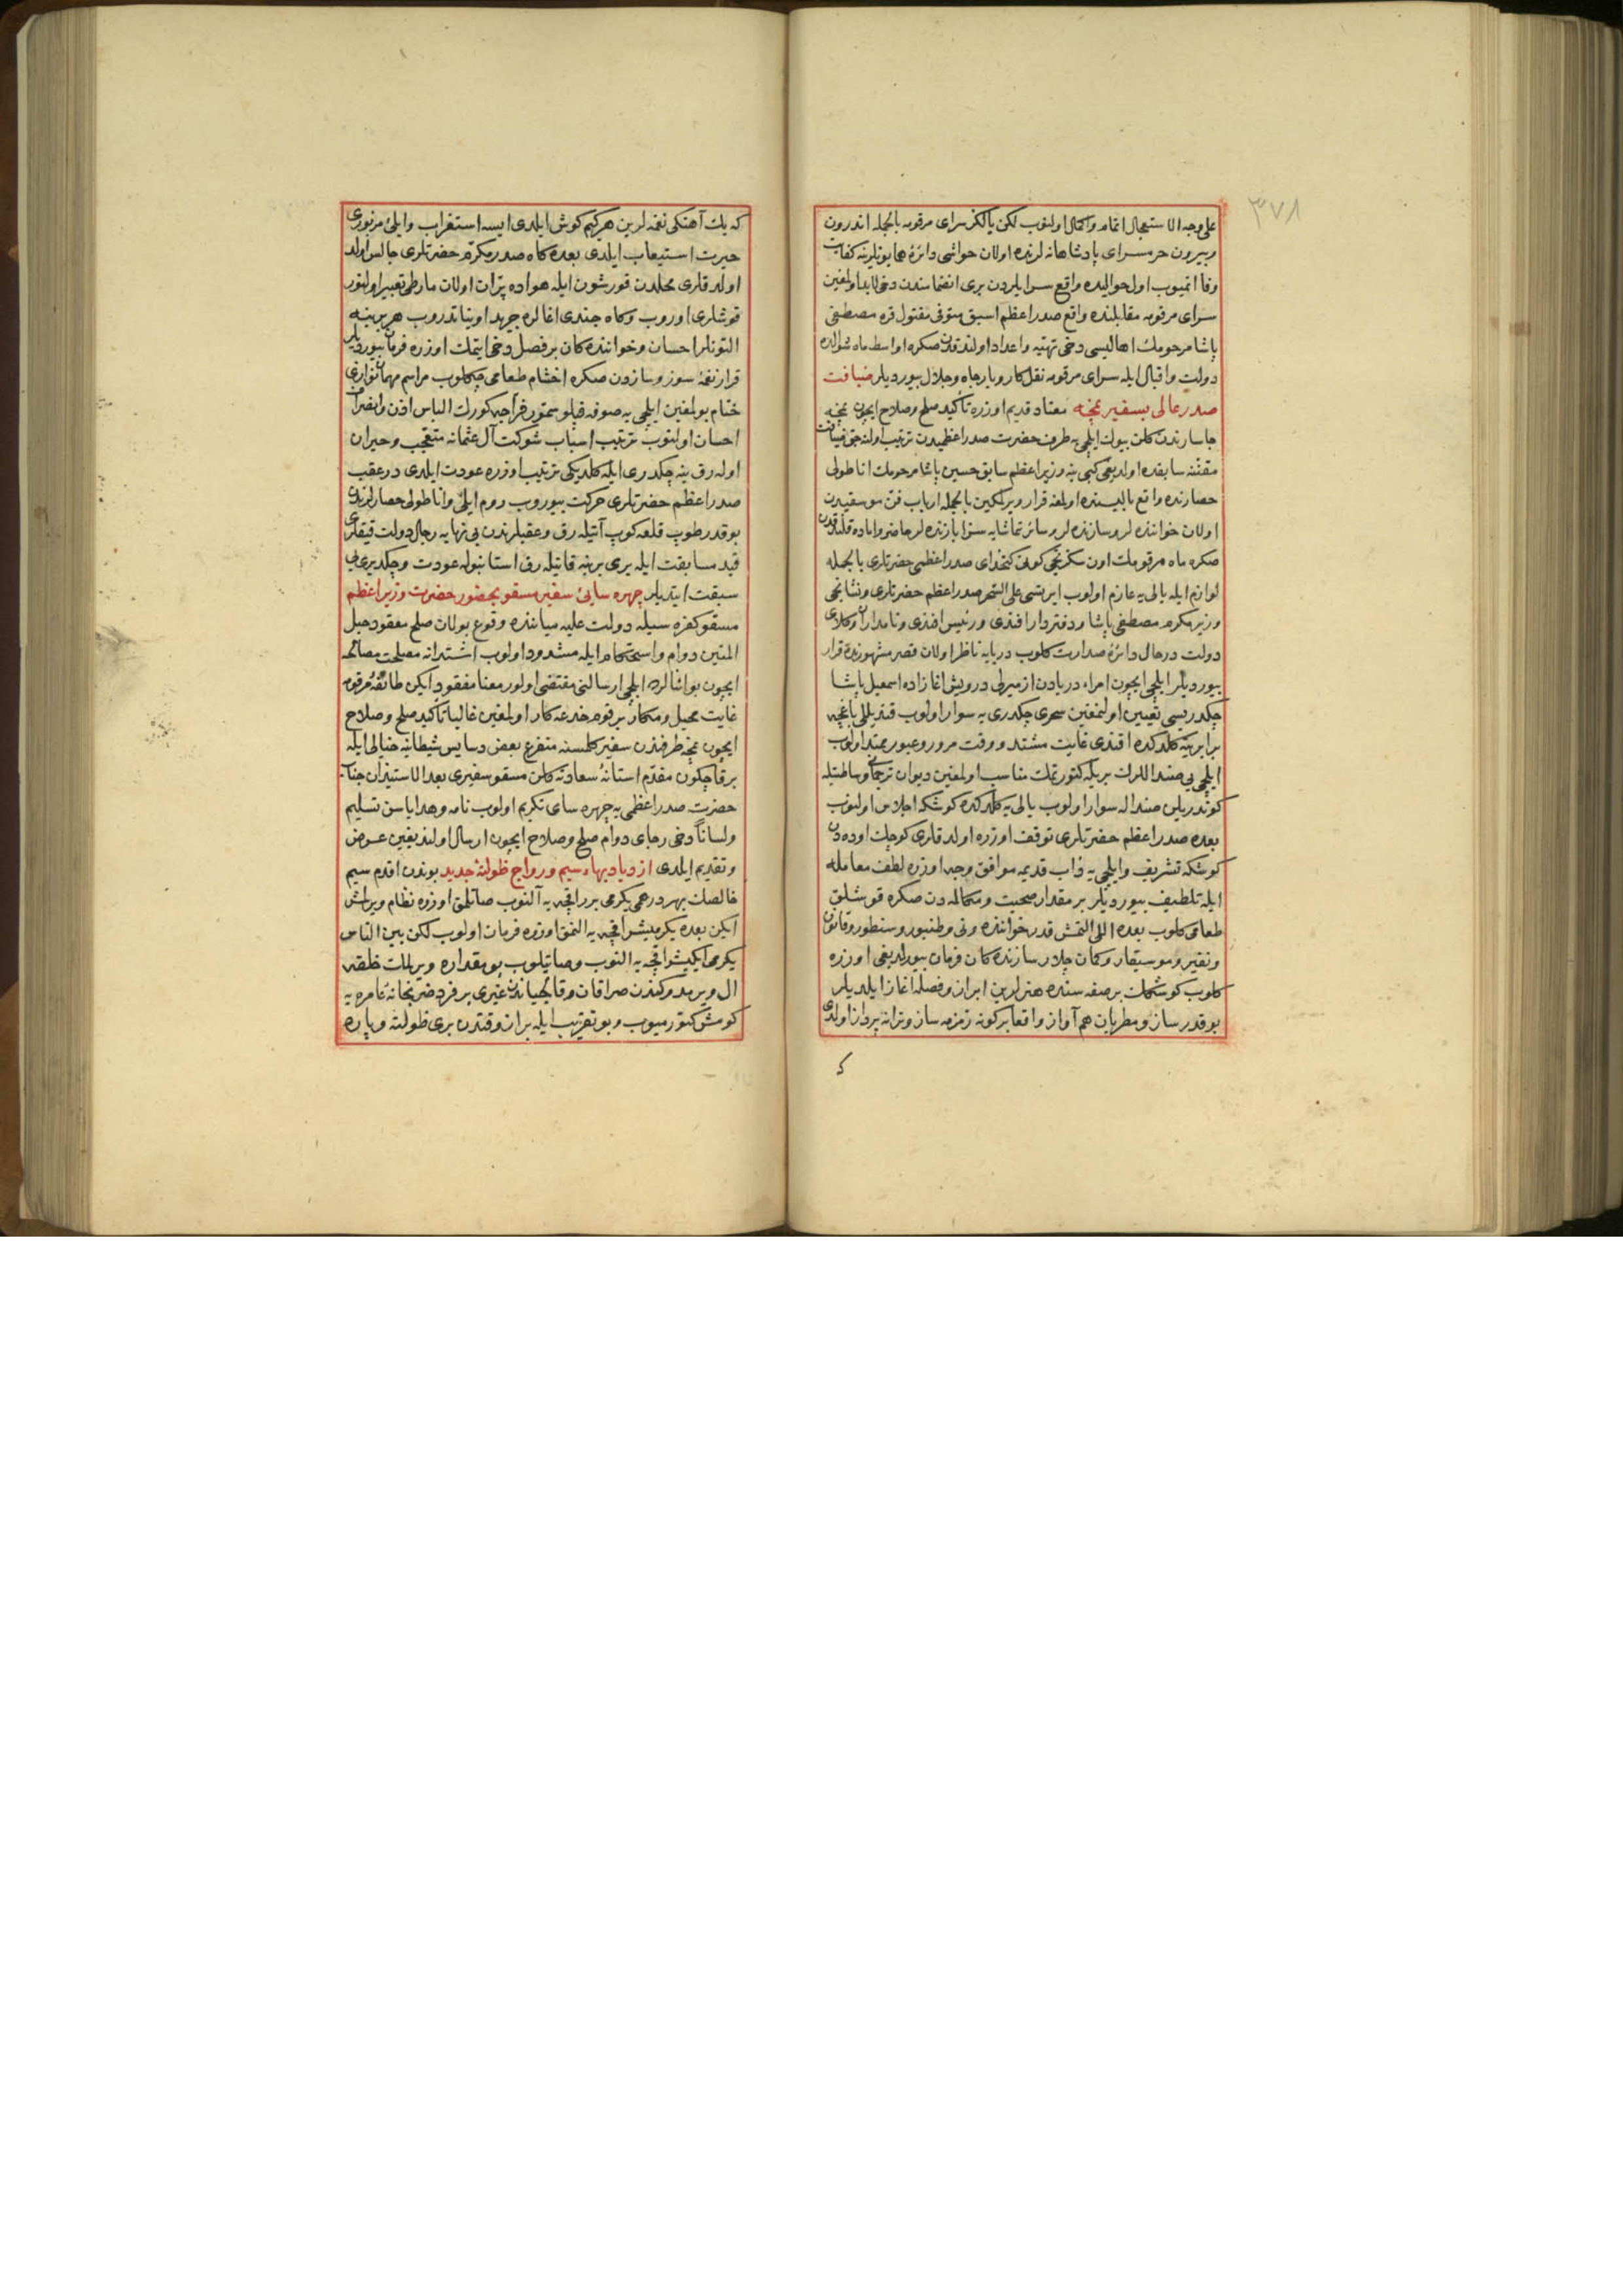 ٣٧٨
على وجه الاستعجال اتمام واكمال اولنوب لكن يالكز سراى مرقومه بالجمله اندرون
وبيرون حرمسراى پادشاهانه لرنده اولان حواشى دائرۀ همايونلرينه كفايت
وفا اتميوب اول حواليده واقع سرايلردن برى انضمامندن دخى لابد اولمغين
سراى مرقومه مقابلنده واقع صدر اعظم اسبق متوفى مقتول قره مصطفى
پاشا مرحومك اهاليسى دخى تهيه واعداد اولندقدن صكره اواسط ماه شوالده
دولت واقبال ايله سراى مرقومه نقل كاروبار جاه وجلال بيورديلر ضيافت
صدر عالى بسفير نمچه معتاد قديم اوزره تأكيد صلح وصلاح ايچون نمچه
چاسارندن كلن بيوك ايلچى يه طرف حضرت صدر اعظميدن ترتيب اولنه جق ضيافت
مقننه سابقده اولديغى كبى ينه وزير اعظم سابق حسين پاشا مرحومك اناطولى
حصارنده واقع ياليسنده اولمغه قرار ويرلمكين بالجمله ارباب فن موسقيدن
اولان خواننده لر وسازنده لر وسائر تماشايه سزا بازنده لر حاضر واماده قلندقدن
صكره ماه مرقومك اون سكزنجى كونى كتخداى صدر اعظمى حضرتلرى بالجمله
لوازم ايله يالى يه عازم اولوب ايرتسى على السحر صدر اعظم حضرتلرى ونشانجى
وزير مكرم مصطفى پاشا ودفتردار افندى ورئيس افندى ونامداران وكلاى
دولت درحال دائرۀ صدارت كلوب دريايه ناظر اولان قصر مشهورنده قرار
بيورديلر ايلچى ايچون امراء دريادن ازميرلى درويش اغا زاده اسمعيل پاشا
چكدريسى تعيين اولنمغين سحرى چكدرى يه سوار اولوب قنديللى باغچه
برابرينه كلدكده اقندى غايت مشتد ووقت مرور وعبور ممتد اولوب
ايلچى يى صندالرله بريكه كتورتمك مناسب اولمغين ديوان ترجمانى وساطتيله
كوندريلن صنداله سوار اولوب يالى يه كلدكده كوشكه اجلاس اولنوب
بعده صدر اعظم حضرتلرى توقف اوزره اولدقلرى كوچك اوده دن
كوشكه تشريف وايلچى يه داب قديمه موافق وجه اوزره لطف معامله
ايله تلطيف بيورديلر بر مقدار صحبت ومكالمه دن صكره قوشلق
طعامى كلوب بعده اللى التمش قدر خواننده ونى وطنبور وسنطور وقانون
ونفير وموسيقار وكمان چلار سازنده كان فرمان بيورلديغى اوزره
كلوب كوشكك بر صفه سنده هنرلرين ابراز وفصله اغاز ايلديلر
بو قدر ساز ومطربان هم آواز واقعا بركونه زمزمه ساز وترانه پرداز اولدى
كه
كه يك آهنكى نغمه لرين هركيم كوش ايلدى ايسه استغراب وايلئ مزبورى
حيرت استيعاب ايلدى بعده كاه صدر مكرم حضرتلرى جالس اولد
اولدقلرى محلدن قورشون ايله هواده پران اولان مارطى تعبير اولنور
قوشلرى اوروب وكاه جندى اغالره جريد اويناتدروب هر برينه
التونلر احسان وخواننده كان بر فصل دخى ايتمك اوزره فرمان بيورديلر
قرار نغمۀ سوز وسازدن صكره اخشام طعامى چكلوب مراسم مهمان نوازى
ختام بولمغين ايلچى يه صوفه قپلو سمور فراجه كورك الباس اذن وانصراف
احسان اولنوب ترتيب اسباب شوكت آل عثمانه متعجب وحيران
اوله رق ينه چكدرى ايله كلديكى ترتيب اوزره عودت ايلدى درعقب
صدر اعظم حضرتلرى حركت بيوروب روم ايلى واناطولى حصارلرندن
بو قدر طوپ قلعه كوب آتيله رق وعقبلرندن بى نهايه رجال دولت قيقلرى
قيد مسابقت ايله برى برينه قاتيله رق استانبوله عودت وچكديرى يى
سبقت ايتديلر چهره سايئ سفير مسقو بحضور حضرت وزير اعظم
مسقو كفره سيله دولت عليه مياننده وقوع بولان صلح معقود حبل
المتين دوام واستحكام ايله مشدود اولوب اشتدانه مصلحت مصالحه
ايچون بو اثنالرده ايلچى ارسالنى مقتضى اولور معنا مفقود ايكن طائفۀ مرقومه
غايت محيل ومكار بر قوم خدعه كار اولمغين غالبا تأكيد صلح وصلاح
ايچون نمچه طرفندن سفير كلمسنه متفرع بعض دسايس شيطانيه خيالى ايله
بر قاچ كون مقدم استانۀ سعادته كلن مسقو سفيرى بعد الاستيذان جناب
حضرت صدر اعظمى يه چهره ساى تكريم اولوب نامه وهداياسن تسليم
ولساناً دخى رجاى دوام صلح وصلاح ايچون ارسال اولنديغين عرض
وتقديم ايلدى ازدياد بهاء سيم ورواج ظولتۀ جديد بوندن اقدم سيم
خالصك بهر درهمى يكرمى برر اقچه يه آلنوب صاتلمق اوزره نظام ويرلمش
ايكن بعده يكرميشر اقچه يه النمق اوزره فرمان اولوب لكن بين الناس
يكرمى ايكيشر اقچه يه النوب وصاتيلوب بو مقداره ويرلمك خلقه
ال ويريدوكندن صرافان وقالجياندن غيرى بر فرد ضربخانۀ عامره يه
كومش كتورميوب وبو تقريب ايله براز وقتدن برى ظولته وپاره